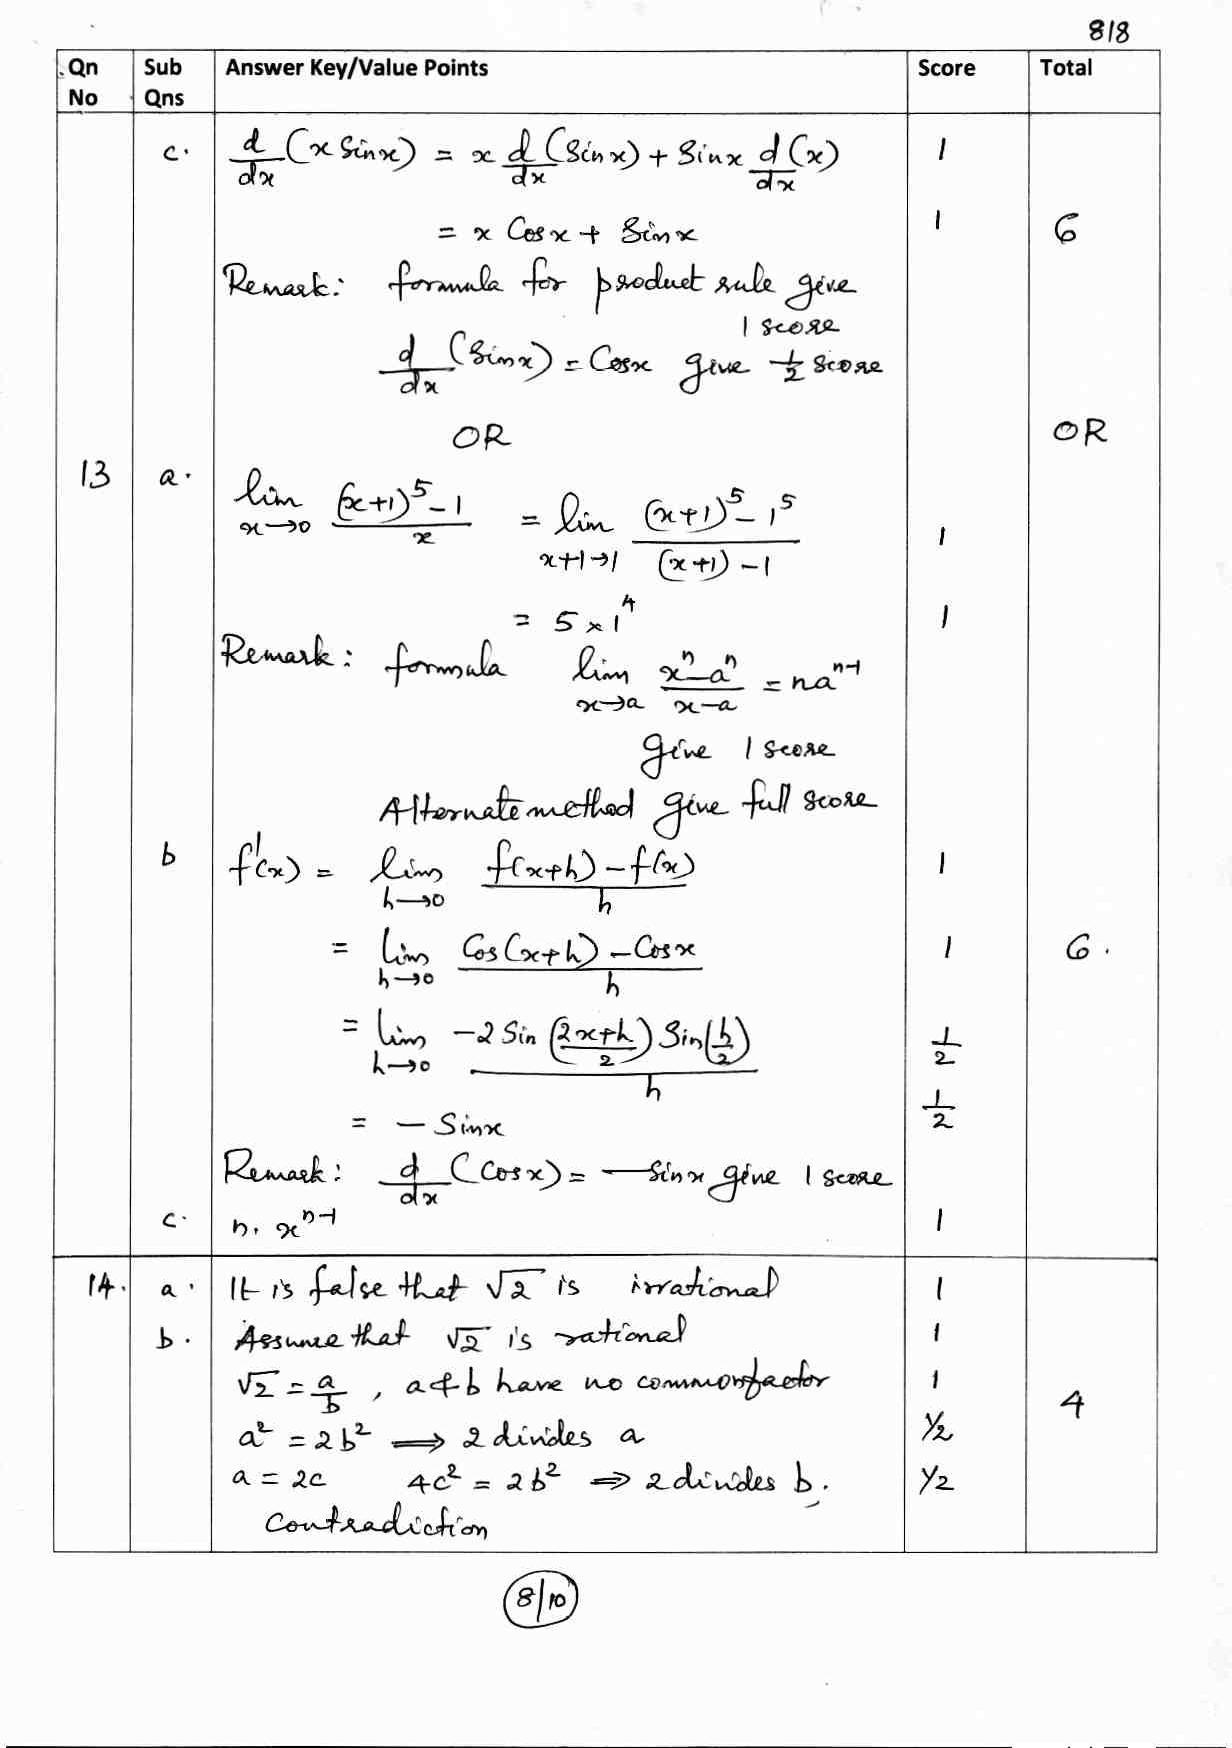 818
Qn No Sub Qns Answer Key/Value Points Score Total
c. d/dx (x Sinx) = x d/dx (Sinx) + Sinx d/dx (x) 1
= x Cosx + Sinx 1 6
Remark: formula for product rule give
1 score
d/dx (Sinx) = Cosx give 1/2 score
OR OR
13 a. lim x→0 ((x+1)^5 - 1)/x = lim x+1→1 ((x+1)^5 - 1^5)/((x+1) - 1) 1
= 5 × 1^4 1
Remark: formula lim x→a (x^n - a^n)/(x - a) = na^(n-1)
give 1 score
Alternate method give full score
b f'(x) = lim h→0 (f(x+h) - f(x))/h 1
= lim h→0 (Cos(x+h) - Cosx)/h 1 6.
= lim h→0 (-2 Sin((2x+h)/2) Sin(h/2))/h 1/2
= - Sinx 1/2
Remark: d/dx (Cosx) = -Sinx give 1 score
c. n. x^(n-1) 1
14. a. It is false that √2 is irrational 1
b. Assume that √2 is rational 1
√2 = a/b, a & b have no common factor 1 4
a² = 2b² ⟹ 2 divides a 1/2
a = 2c 4c² = 2b² ⟹ 2 divides b. 1/2
Contradiction
8/10